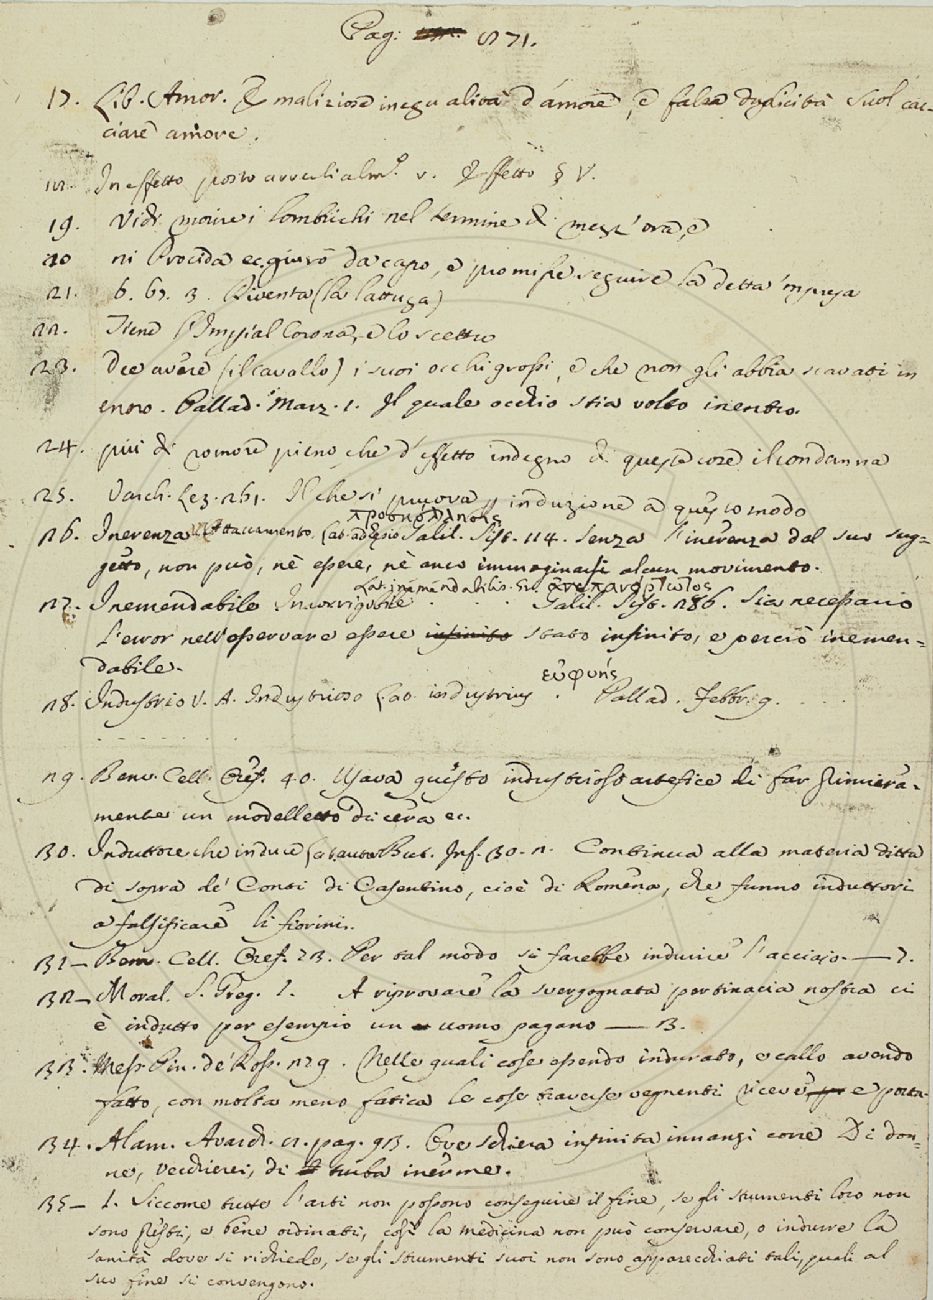 Pag: 871.
17. Lib. Amor. E maliziose inegualità d'amore, e falsa duplicità suol cac-
ciare amore.
In effetto posto v. Effetto § V.
19. Vidi morire i lombrichi nel termine di mezz'ora, e
20 ni Procida ec giurò da capo, e promise seguire la detta impresa
21. 6. 67. 3. Diventa (la lattuga)
22. Tiene l'Imperial Corona, e lo scettro
23. Dee avere (il cavallo) i suoi occhi grossi, e che non gli abbia scavati in
entro. Pallad. Marz. 1. Il quale occhio stia volto inentro.
24. più di romore pieno che d'effetto indegno di queste cose il condanna
25. Varch. Lez. 261. Il che si pruova induzione a questo modo
προσκόλλησις
26. Inerenza Attaccamento. Lat. adhesio Galil. Sist. 114. Senza l'inerenza dal suo sug-
getto, non può, nè essere, nè anco immaginarsi alcun movimento.
Lat. inemendabilis. Gr. ἀνεπανόρθωτος
27. Inemendabile Incorrigibile Galil. Sist. 286. Sia necessario
l'error nell'osservare essere infinito stato infinito, e perciò inemen-
dabile.
εὐφυής
28. Industrio V. A. Industrioso Lat. industrius . Pallad. Febbr. 9. . . . .
. . . . . . . .
29. Benv. Cell. Oref. 40. Usava questo industrioso artefice di far primiera-
mente un modelletto di cera ec.
30. Induttore che induce Lat. autor But. Inf. 30. 2. Continua alla materia ditta
di sopra de' Conti di Casentino, cioè di Romena, che funno induttori
a falsificare li fiorini.
31 — Benv. Cell. Oref. 23. Per tal modo si farebbe indurire l'acciajo. — 7.
32 — Moral. S. Greg. 1. A riprovare la svergognata pertinacia nostra ci
è indutto per esempio un uomo pagano — 13.
33. Mess. Cin. de' Ross. 229. Nelle quali cose essendo indurato, e callo avendo
fatto, con molta meno fatica le cose traverse vegnenti riceve e porta.
34. Alam. Avarch. 2. pag. 93. Ove schiera infinita innanzi corre Di don-
ne, vecchierei, di turba inerme.
35 — 1. Siccome tutte l'arti non possono conseguire il fine, se gli strumenti loro non
sono presti, e bene ordinati, così la medicina non può conservare, o indurre la
sanità dove si richiede, se gli strumenti suoi non sono apparecchiati tali, quali al
suo fine si convengono.